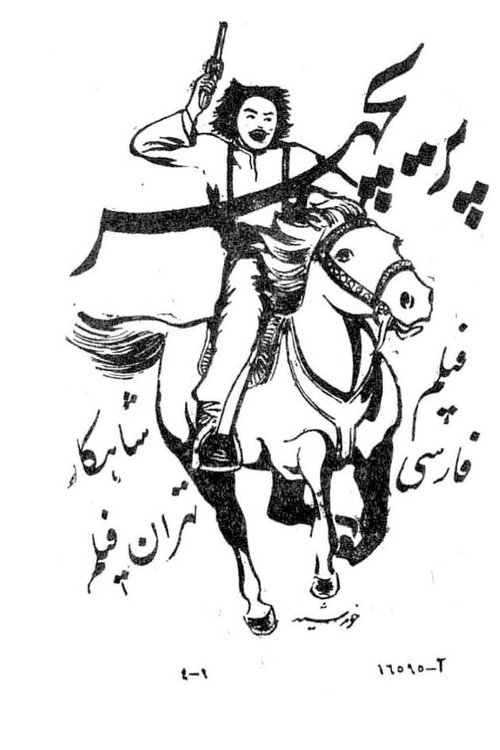 پریچهر
فیلم
فارسی
شاهکار
تهران فیلم
خورشید
۴-۱
۱۶۵۹۵-آ